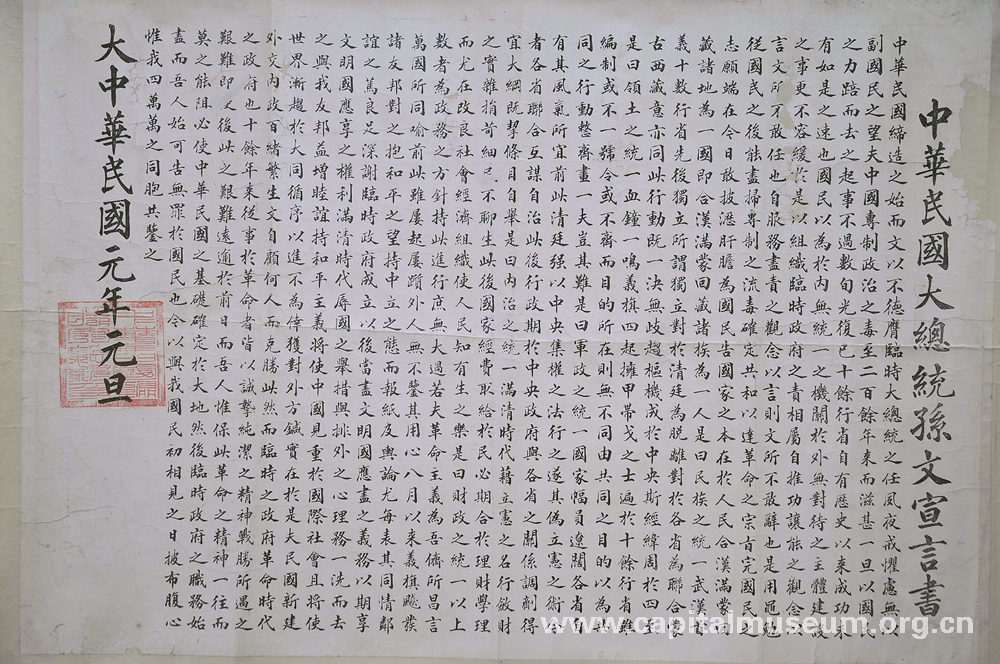 中華民國大總統孫文宣言書
中華民國締造之始而文以不德膺臨時大總統之任夙夜戒懼慮無以
副國民之望夫中國專制政治之毒至二百餘年來而滋甚一旦以國民
之力踣而去之起事不過數旬光復已十餘行省自有歷史以來成功未
有如是之速也國民以為於內無統一之機關於外無對待之主體建設
之事更不容緩於是以組織臨時政府之責相屬自推功讓能之觀念以
言文所不敢任也自服務盡責之觀念以言則文所不敢辭也是用黽勉
從國民之後能盡掃專制之流毒確定共和以達革命之宗旨完國民之
志願端在今日敢披瀝肝膽為國民告國家之本在於人民合漢滿蒙回
藏諸地為一國即合漢滿蒙回藏諸族為一人是曰民族之統一武漢首
義十數行省先後獨立所謂獨立對於清廷為脫離對於各省為聯合蒙
古西藏意亦同此行動既一決無歧趨樞機成於中央斯經緯周於四至
是曰領土之統一血鐘一鳴義旗四起擁甲帶戈之士遍於十餘行省雖
編制或不一號令或不齊而目的所在則無不同由共同之目的以為共
同之行動整齊畫一夫豈其難是曰軍政之統一國家幅員遼闊各省自
有其風氣所宜前此清廷强以中央集權之法行之遂其偽立憲之術今
者各省聯合互謀自治此後行政期於中央政府與各省之關係調劑得
宜大綱既挈條目自舉是曰內治之統一滿清時代藉立憲之名行斂財
之實雜捐苛細民不聊生此後國家經費取給於民必期合於理財學理
而尤在改良社會經濟組織使人民知有生之樂是曰財政之統一以上
數者為政務之方針持此進行庶無大過若夫革命主義為吾儕所昌言
萬國所同喻前此雖屢起屢躓外人無不鑒其用心八月以來義旗飈發
諸友邦對之抱和平之望持中立之態而報紙及輿論尤每表其同情鄰
誼之篤良足深謝臨時政府成立以後當盡文明國應盡之義務以期享
文明國應享之權利滿清時代辱國之舉措與排外之心理務一洗而去
之與我友邦益增睦誼持和平主義將使中國見重於國際社會且將使
世界漸趨於大同循序以進不為倖獲對外方鍼實在於是夫民國新建
外交內政百緒繁生文自顧何人而克勝此然而臨時之政府革命時代
之政府也十餘年來從事於革命者皆以誠摯純潔之精神戰勝所遇之
艱難即使後此之艱難遠逾於前日而吾人惟保此革命之精神一往而
莫之能阻必使中華民國之基礎確定於大地然後臨時政府之職務始
盡而吾人始可告無罪於國民也今以與我國民初相見之日披布腹心
惟我四萬萬之同胞共鑒之
大中華民國元年元旦
www.capitalmuseum.org.cn